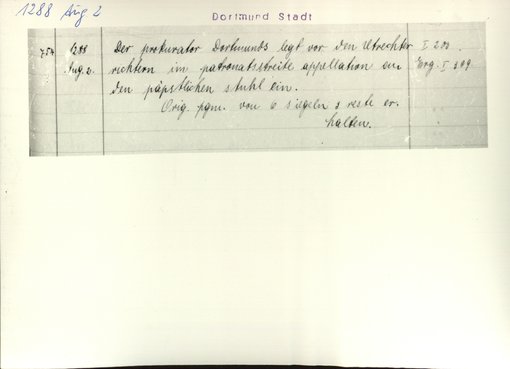 1288 Aug 2
Dortmund Stadt
754 1288 Der prokurator Dortmunds legt vor den Utrechter I 203.
Aug. 2. richtern im patronatsstreite appellation an Erg. I 309.
den päpstlichen stuhl ein.
Orig. pgm. von 6 siegeln 3 reste er-
halten.